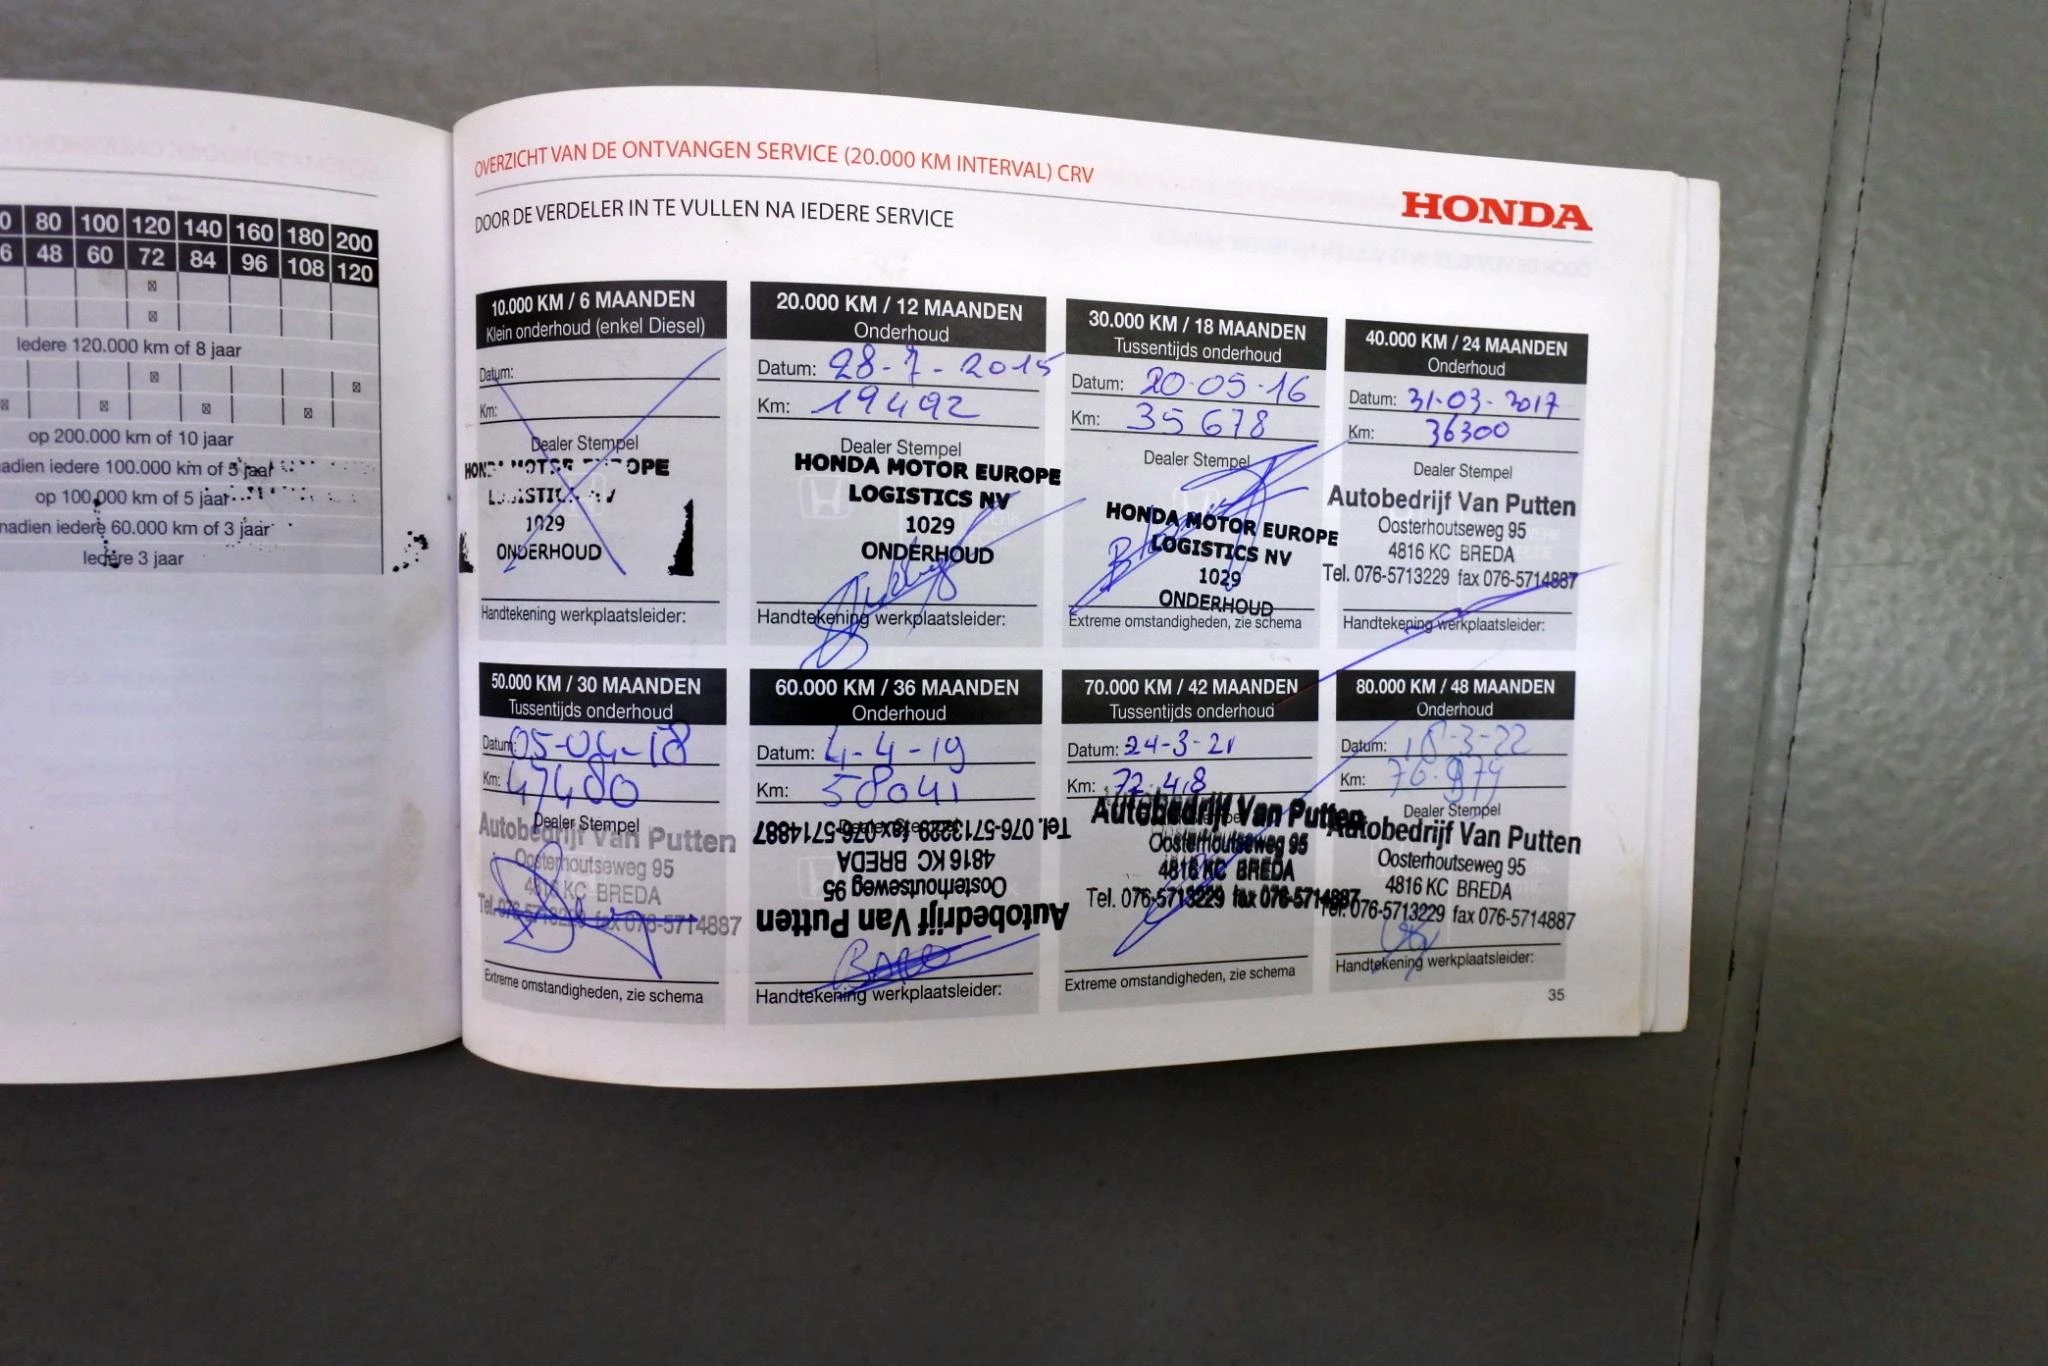 80 100 120 140 160 180 200
48 60 72 84 96 108 120
Iedere 120.000 km of 8 jaar
op 200.000 km of 10 jaar
iedere 100.000 km of 5 jaar
op 100.000 km of 5 jaar
iedere 60.000 km of 3 jaar
Iedere 3 jaar
OVERZICHT VAN DE ONTVANGEN SERVICE (20.000 KM INTERVAL) CRV
HONDA
DOOR DE VERDELER IN TE VULLEN NA IEDERE SERVICE
10.000 KM / 6 MAANDEN
Klein onderhoud (enkel Diesel)
Datum:
Km:
Dealer Stempel
HONDA MOTOR EUROPE
LOGISTICS NV
1029
ONDERHOUD
Handtekening werkplaatsleider:
20.000 KM / 12 MAANDEN
Onderhoud
Datum: 28-7-2015
Km: 19492
Dealer Stempel
HONDA MOTOR EUROPE
LOGISTICS NV
1029
ONDERHOUD
Handtekening werkplaatsleider:
30.000 KM / 18 MAANDEN
Tussentijds onderhoud
Datum: 20-05-16
Km: 35678
Dealer Stempel
HONDA MOTOR EUROPE
LOGISTICS NV
1029
ONDERHOUD
Extreme omstandigheden, zie schema
40.000 KM / 24 MAANDEN
Onderhoud
Datum: 31-03-2017
Km: 36300
Dealer Stempel
Autobedrijf Van Putten
Oosterhoutseweg 95
4816 KC BREDA
Tel. 076-5713229 fax 076-5714887
Handtekening werkplaatsleider:
50.000 KM / 30 MAANDEN
Tussentijds onderhoud
Datum: 05-04-18
Km: 47480
Dealer Stempel
Autobedrijf Van Putten
Oosterhoutseweg 95
4816 KC BREDA
Tel. 076-5713229 fax 076-5714887
Extreme omstandigheden, zie schema
60.000 KM / 36 MAANDEN
Onderhoud
Datum: 4-4-19
Km: 58041
Dealer Stempel
Autobedrijf Van Putten
Oosterhoutseweg 95
4816 KC BREDA
Tel. 076-5713229 fax 076-5714887
Handtekening werkplaatsleider:
70.000 KM / 42 MAANDEN
Tussentijds onderhoud
Datum: 24-3-21
Km:
Autobedrijf Van Putten
Oosterhoutseweg 95
4816 KC BREDA
Tel. 076-5713229 fax 076-5714887
Extreme omstandigheden, zie schema
80.000 KM / 48 MAANDEN
Onderhoud
Datum:
Km:
Dealer Stempel
Autobedrijf Van Putten
Oosterhoutseweg 95
4816 KC BREDA
Tel. 076-5713229 fax 076-5714887
Handtekening werkplaatsleider:
35